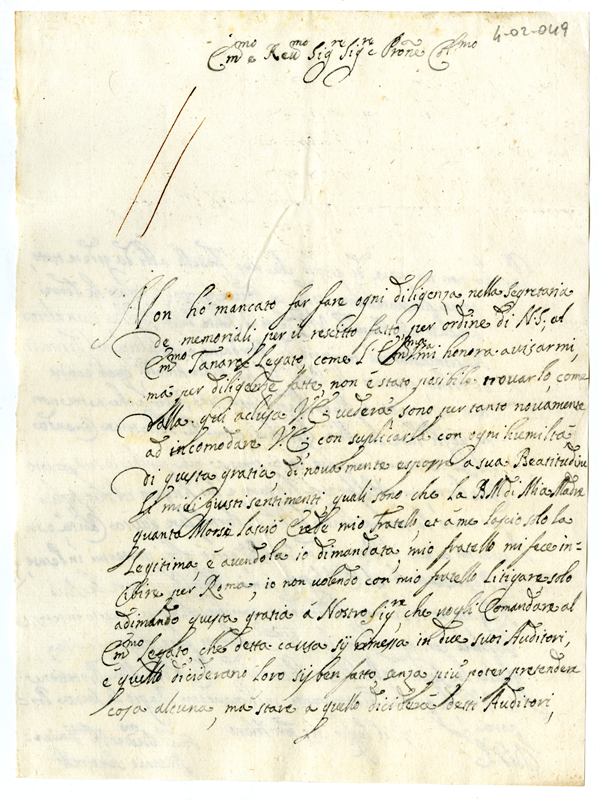 4-02-049
Em̃mo e Reũmo Sigre Sigre e Prone Colmo
Non ho mancato far fare ogni diligenza nella Segretaria
de memoriali, per il rescitto fatto per ordine di N.S; al
Em̃mo Tanara Legato, come l' mi honora avisarmi,
ma per diligenze fatte non é stato posibile trovarlo, come
dalla qui aclusa V.E; vederà sono per tanto novamente
ad incomodare V.E; con suplicarla con ogni humiltà
di questa gratia di novamente esporre a sua Beatitudine
li miei giusti sentimenti, quali sono che la B.M. di Mia Madre
quanta Morse lasciò Erede mio fratello, et a me lascio solo la
Legitima, é avendola io dimandata, mio fratello mi fece in=
tibire per Roma, io non volendo con mio fratello Litigare solo
adimando questa gratia á Nostro Sigre, che vogli Comandare al
Em̃mo Legato, che detta causa sij comessa in due suoi Auditori,
é quello diciderano loro sij ben fatto, senza più poter pretendere
cosa alcuna, ma stare a quello diciderà detti Auditori,